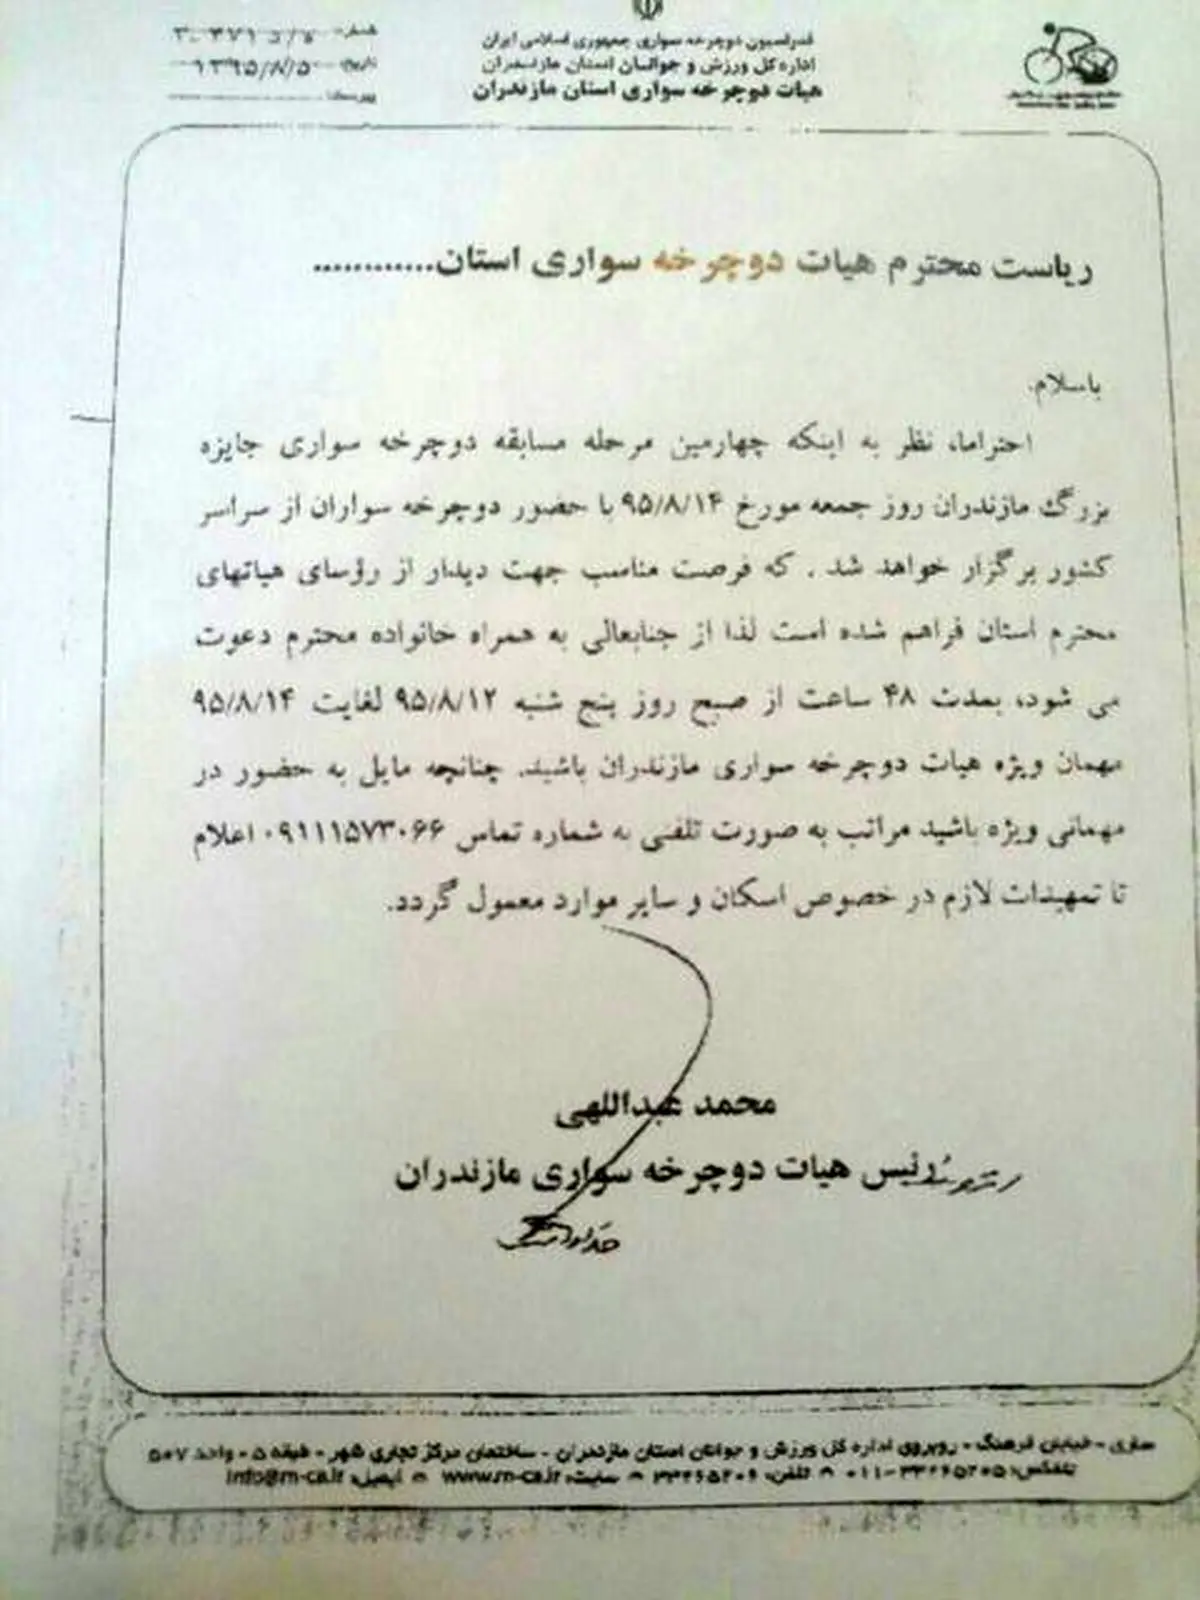 فدراسیون دوچرخه سواری جمهوری اسلامی ایران
اداره کل ورزش و جوانان استان مازندران
هیات دوچرخه سواری استان مازندران
۱۳۹۵/۸/۵
ریاست محترم هیات دوچرخه سواری استان............
باسلام.
احتراما، نظر به اینکه چهارمین مرحله مسابقه دوچرخه سواری جایزه
بزرگ مازندران روز جمعه مورخ ۹۵/۸/۱۴ با حضور دوچرخه سواران از سراسر
کشور برگزار خواهد شد . که فرصت مناسب جهت دیدار از رؤسای هیاتهای
محترم استان فراهم شده است لذا از جنابعالی به همراه خانواده محترم دعوت
می شود، بمدت ۴۸ ساعت از صبح روز پنج شنبه ۹۵/۸/۱۲ لغایت ۹۵/۸/۱۴
مهمان ویژه هیات دوچرخه سواری مازندران باشید. چنانچه مایل به حضور در
مهمانی ویژه باشید مراتب به صورت تلفنی به شماره تماس ۰۹۱۱۱۵۷۳۰۶۶ اعلام
تا تمهیدات لازم در خصوص اسکان و سایر موارد معمول گردد.
محمد عبداللهی
رئیس هیات دوچرخه سواری مازندران
ساری - خیابان فرهنگ - روبروی اداره کل ورزش و جوانان استان مازندران - ساختمان مرکز تجاری شهر - طبقه ۵ - واحد ۵۰۷
تلفکس: ۰۱۱-۳۳۲۶۵۲۰۵ تلفن: ۳۳۲۶۵۲۰۶ سایت: www.m-ca.ir ایمیل: info@m-ca.ir